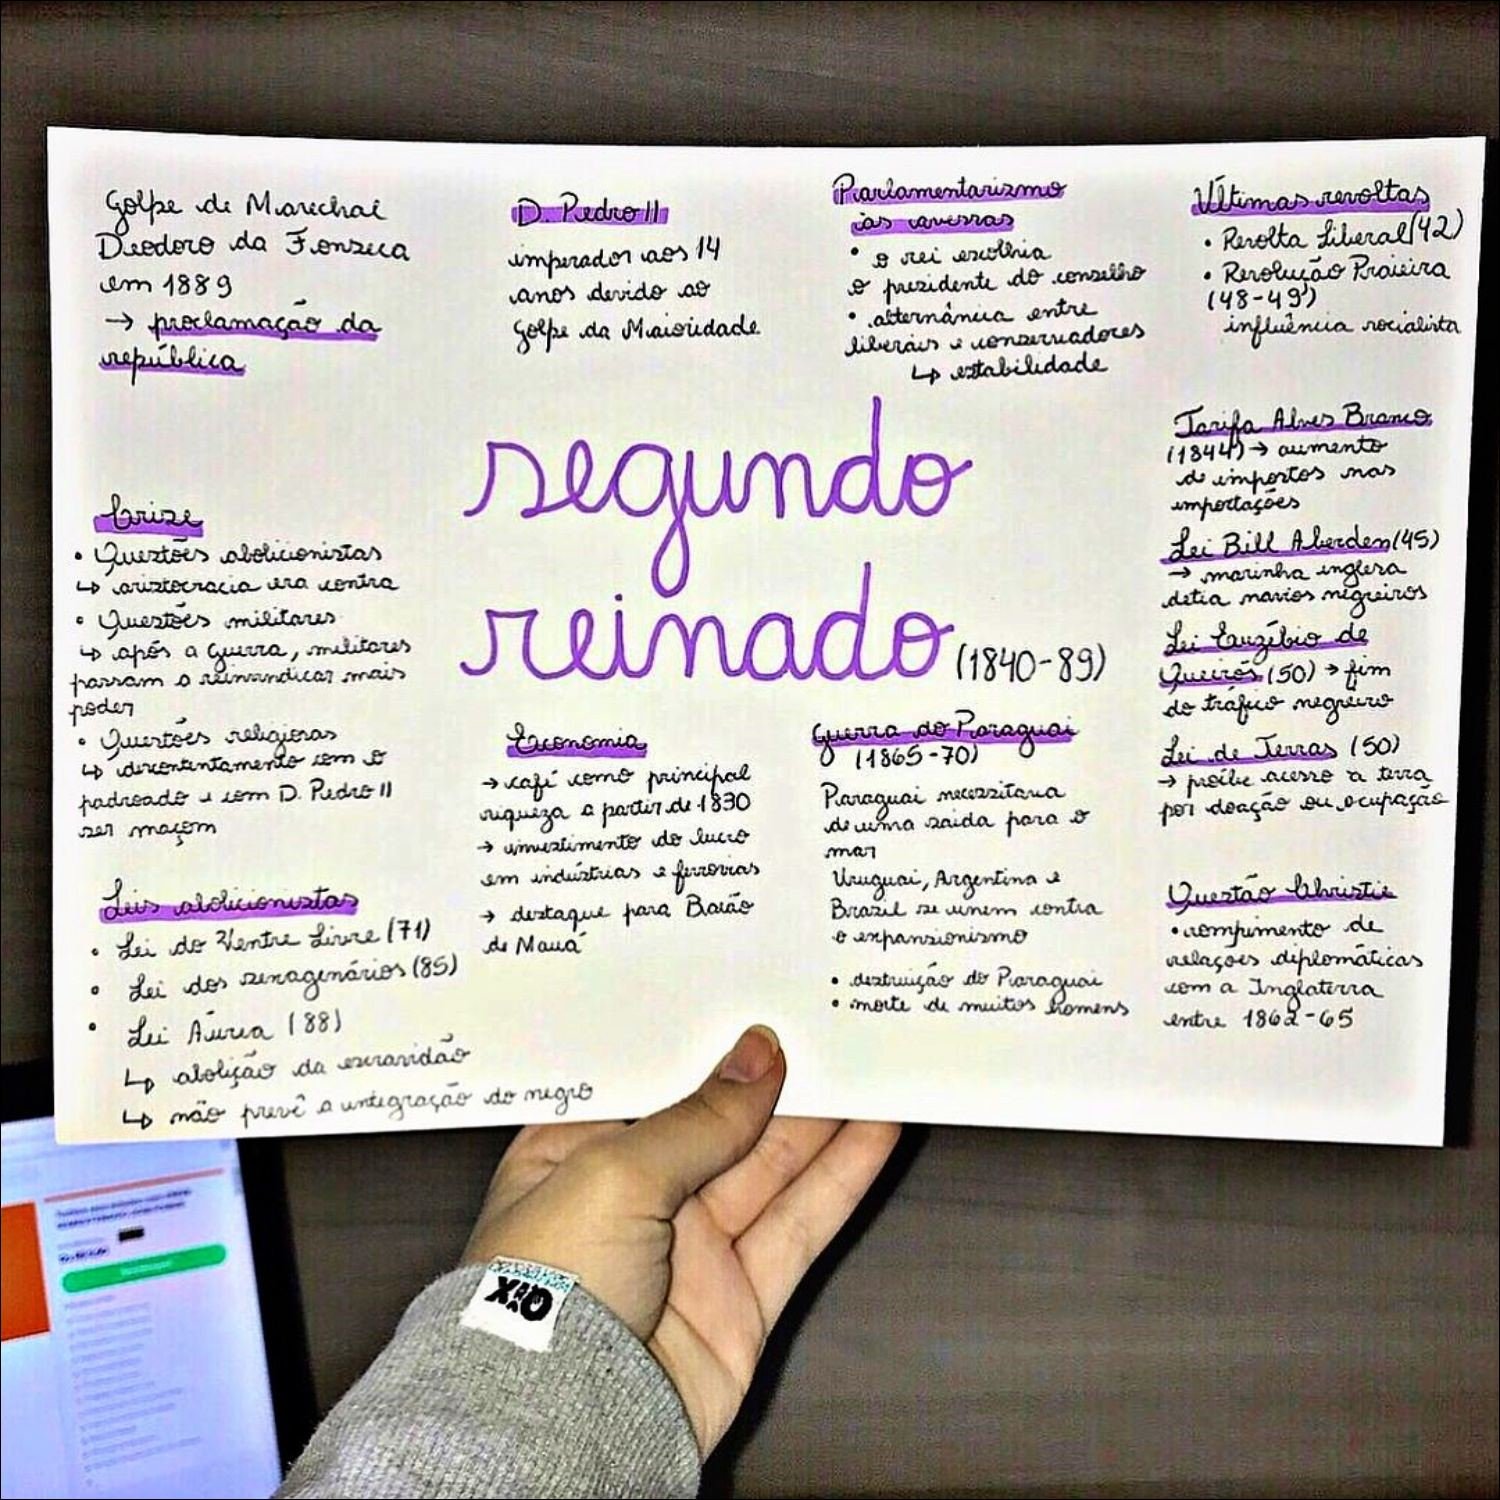 Golpe de Marechal
Deodoro da Fonseca
em 1889
→ proclamação da
república
D. Pedro II
imperador aos 14
anos devido ao
Golpe da Maioridade
Parlamentarismo
às avessas
• o rei escolhia
o presidente do conselho
• alternância entre
liberais e conservadores
↳ estabilidade
Últimas revoltas
• Revolta Liberal (42)
• Revolução Praieira
(48-49)
influência socialista
segundo
reinado (1840-89)
Tarifa Alves Branco
(1844) → aumento
de impostos nas
importações
Lei Bill Aberden (45)
→ marinha inglesa
detia navios negreiros
Lei Euzébio de
Queirós (50) → fim
do tráfico negreiro
Lei de Terras (50)
→ proíbe acesso a terra
por doação ou ocupação
Crise
• Questões abolicionistas
↳ aristocracia era contra
• Questões militares
↳ após a guerra, militares
passam a reinvindicar mais
poder
• Questões religiosas
↳ descontentamento com o
padroado e com D. Pedro II
ser maçom
Economia
→ café como principal
riqueza a partir de 1830
→ investimento do lucro
em indústrias e ferrovias
→ destaque para Barão
de Mauá
Guerra do Paraguai
(1865-70)
Paraguai necessitava
de uma saída para o
mar
Uruguai, Argentina e
Brasil se unem contra
o expansionismo
• destruição do Paraguai
• morte de muitos homens
Questão Christie
• rompimento de
relações diplomáticas
com a Inglaterra
entre 1862-65
Leis abolicionistas
• Lei do Ventre Livre (71)
• Lei dos sexagenários (85)
• Lei Áurea (88)
↳ abolição da escravidão
↳ não prevê a integração do negro
QIX